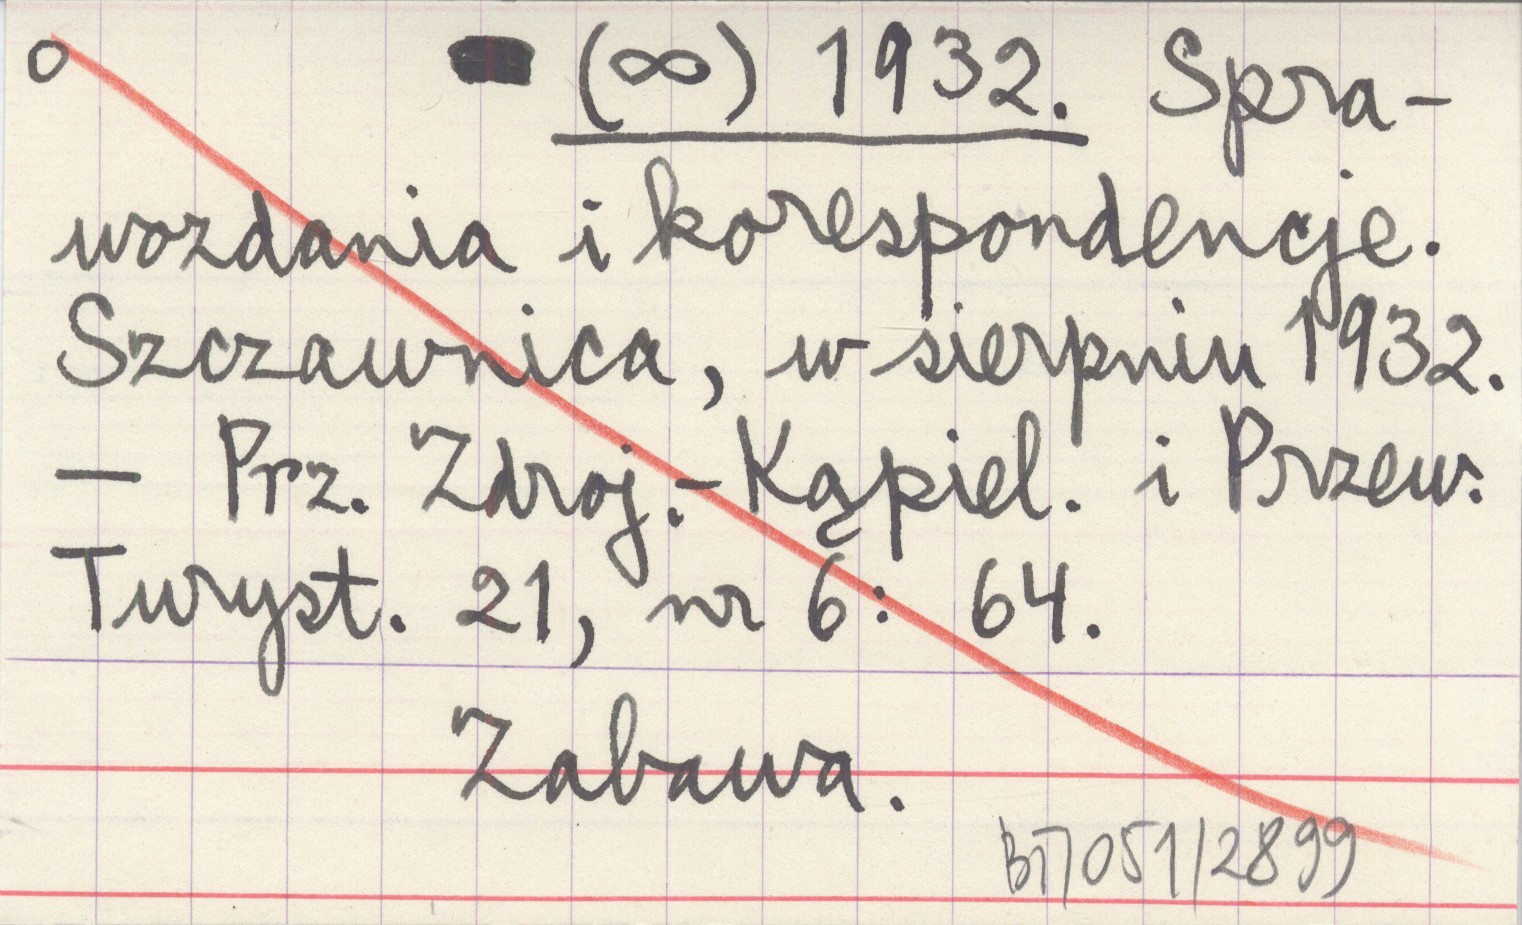 o (∞) 1932. Spra-
wozdania i korespondencje.
Szczawnica, w sierpniu 1932.
— Prz. Zdroj.-Kąpiel. i Przew.
Turyst. 21, nr 6: 64.
Zabawa.
BT/051/2899